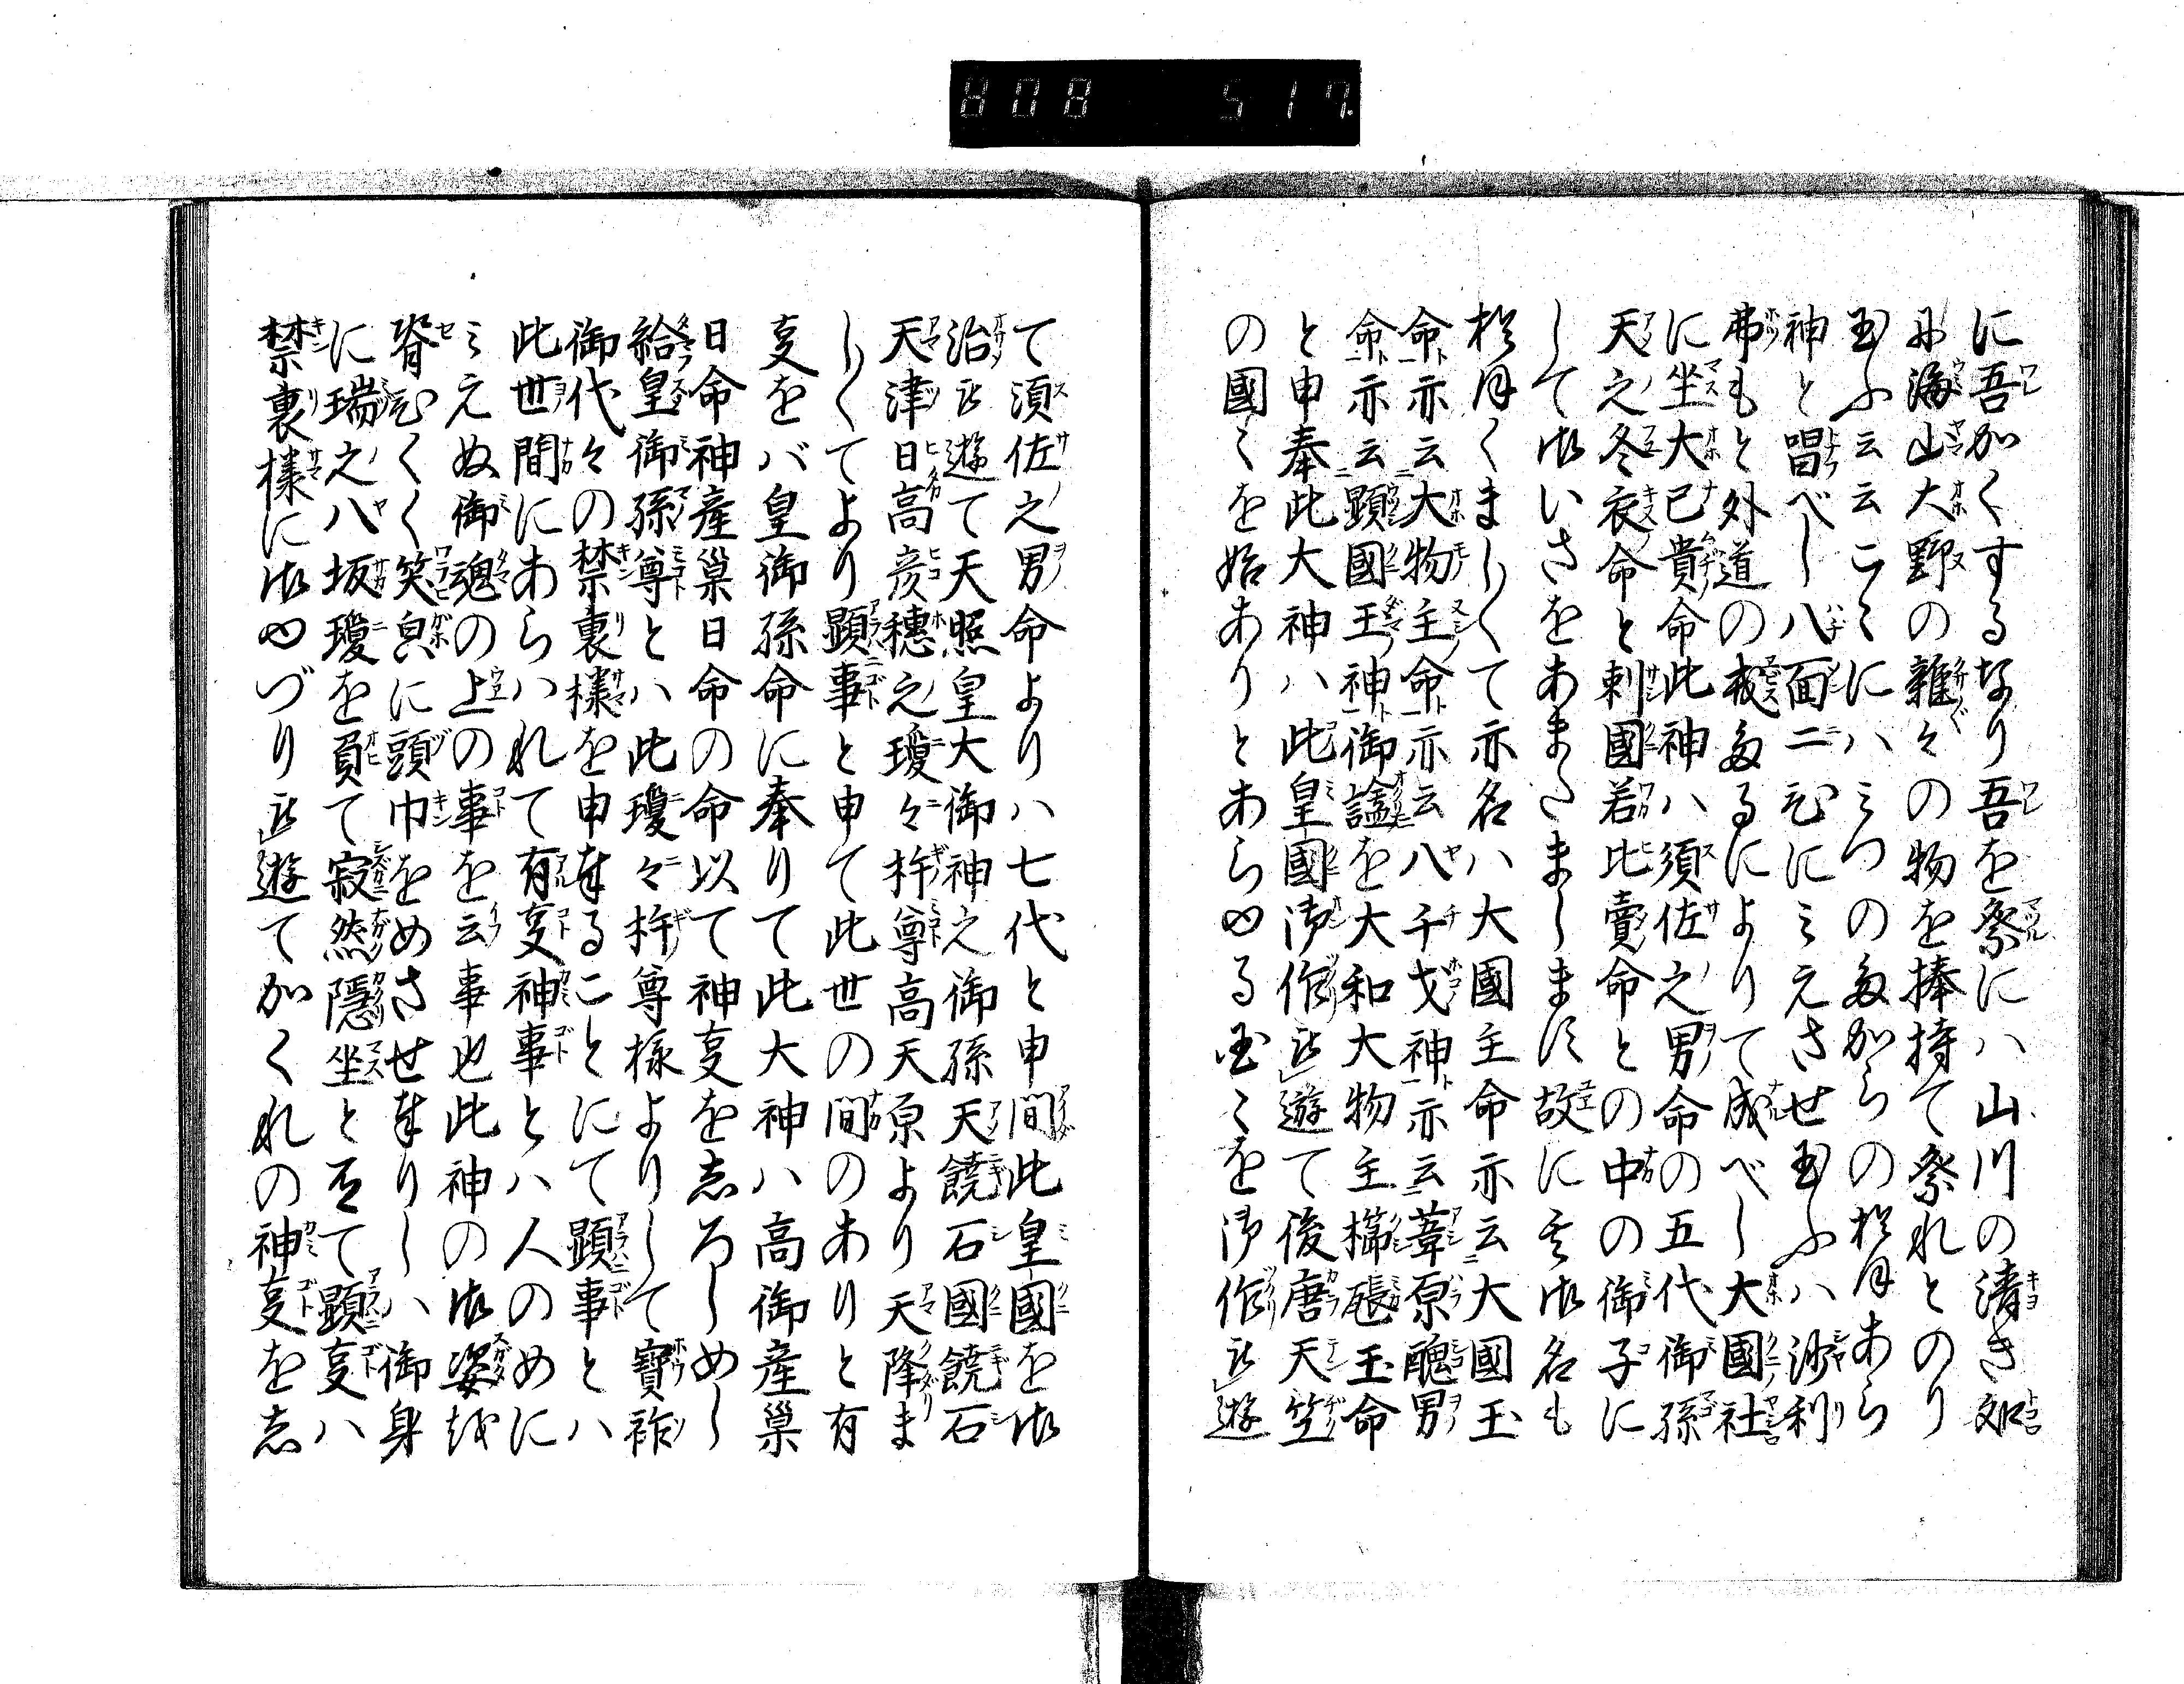 808 517
に吾かくするなり吾を祭にハ山川の清き処
に海山大野の雑々の物を捧持て祭れとのり
玉ふ云云こゝにハミつのたからの於月あら
神と唱べし八面二ひにミえさせ玉ふハ沙利
弗もと外道の𢦏たるによりて成べし大國社
に坐大已貴命此神ハ須佐之男命の五代御孫
天之冬衣命と刺國若比賣命との中の御子に
して御いさをあまたまします故に其御名も
於月くましくて亦名ハ大國主命亦云大國玉
命亦云大物主命亦云八千戈神亦云葦原醜男
命亦云顕國玉神御諡を大和大物主櫛𤭖玉命
と申奉此大神ハ此皇國御作被遊て後唐天笠
の國くを始ありとあらゆる国くを御作被遊
て須佐之男命よりハ七代と申間此皇國を御
治被遊て天照皇大御神之御孫天饒石國饒石
天津日高彦穂之瓊々杵尊高天原より天降ま
しくてより顕事と申て此世の間のありと有
㕝をバ皇御孫命に奉りて此大神ハ高御産巣
日命神産巣日命の命以て神㕝を志ろしめし
給皇御孫尊とハ此瓊々杵尊様よりして寳祚
御代々の禁裏様を申奉ることにて顕事とハ
此世間にあらハれて有㕝神事とハ人のめに
ミえぬ御魂の上の事を云事也此神の御姿は
脊ひくく笑㒵に頭巾をめさせ奉りしハ御身
に瑞之八坂瓊を負て寂然隠坐と有て顕㕝ハ
禁裏様に御ゆづり被遊てかくれの神㕝を志